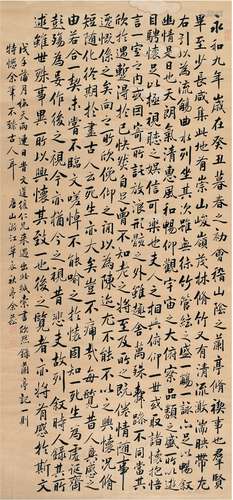 永和九年歲在癸丑暮春之初會稽山陰之蘭亭脩禊事也群賢
畢至少長咸集此地有崇山峻嶺茂林脩竹又有清流激湍暎帶左
右引以為流觴曲水列坐其次雖無絲竹管絃之盛一觴一詠亦足以暢敘
幽情是日也天朗氣清惠風和暢仰觀宇宙之大俯察品類之盛所以
遊目騁懷足以極視聽之娛信可樂也夫人之相與俯仰一世或取諸懷抱悟
言一室之內或因寄所託放浪形骸之外雖趣舍萬殊靜躁不同當其
欣於所遇蹔得於己快然自足不知老之將至及其所之既倦情隨事
遷感慨係之矣向之所欣俛仰之間以為陳迹猶不能不以之興懷況脩
短隨化終期於盡古人云死生亦大矣豈不痛哉每攬昔人興感之
由若合一契未嘗不臨文嗟悼不能喻之於懷固知一死生為虛誕齊
彭殤為妄作後之視今亦猶今之視昔悲夫故列敘時人錄其所
述雖世殊事異所以興懷其致一也後之攬者亦將有感於斯文
戊子蒲月天雨連日仁兄來過出此紙索書欣然錄蘭亭記一則
特愧余筆不類古人耳